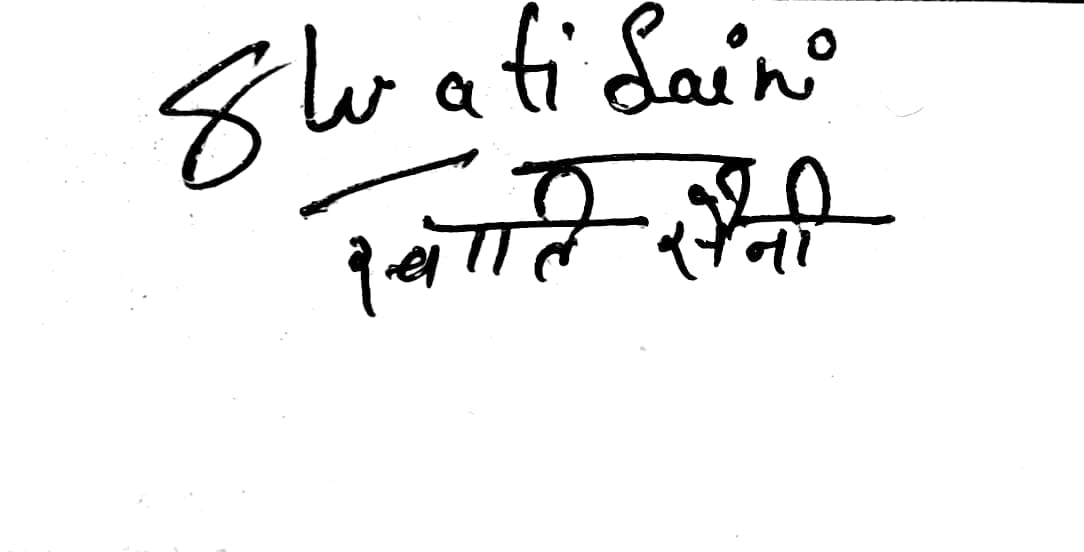 Swati Saini
स्वाति सैनी